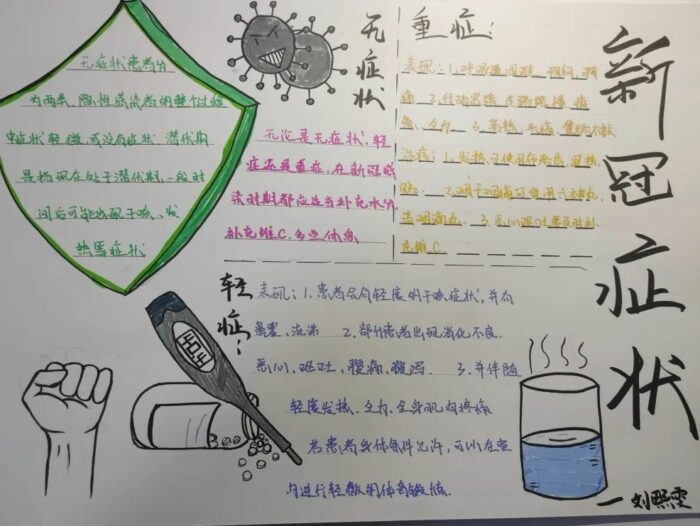 新冠症状
无症状
无症状患者分
为两类，隐性感染者的整个过程
中症状轻微，或没有症状，潜伏期
是指现在处于潜伏期，一段时
间后可能出现干咳、发
热等症状
无论是无症状，轻
症还是重症，在新冠感
染时期都应适当补充水分
补充维C，多些休息
重症：
表现：1.呼吸道困难、胸闷、胸
痛 2.行动
乏力
治疗：1.发热可使用布洛芬、退热
贴 2.咽干咽痛可使用六神丸、
充维C
轻症：
表现：1.患者会有轻度的干咳症状，并有
鼻塞、流涕 2.部分患者出现消化不良、
恶心、呕吐、腹痛、腹泻 3.并伴随
轻度发热、乏力、全身肌肉疼痛
若患者身体条件允许，可以在室
内进行轻微的体育锻炼.
一刘熙雯